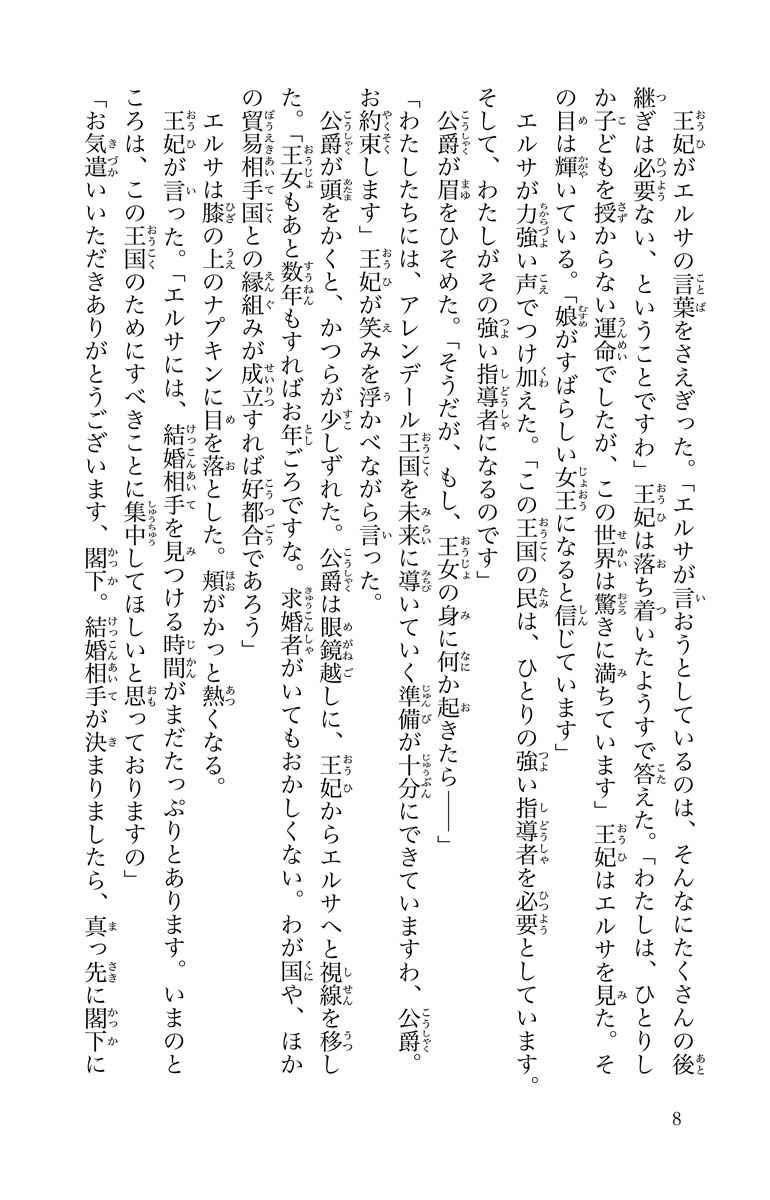 王妃がエルサの言葉をさえぎった。「エルサが言おうとしているのは、そんなにたくさんの後
継ぎは必要ない、ということですわ」王妃は落ち着いたようすで答えた。「わたしは、ひとりし
か子どもを授からない運命でしたが、この世界は驚きに満ちています」王妃はエルサを見た。そ
の目は輝いている。「娘がすばらしい女王になると信じています」
エルサが力強い声でつけ加えた。「この王国の民は、ひとりの強い指導者を必要としています。
そして、わたしがその強い指導者になるのです」
公爵が眉をひそめた。「そうだが、もし、王女の身に何か起きたら――」
「わたしたちには、アレンデール王国を未来に導いていく準備が十分にできていますわ、公爵。
お約束します」王妃が笑みを浮かべながら言った。
公爵が頭をかくと、かつらが少しずれた。公爵は眼鏡越しに、王妃からエルサへと視線を移し
た。「王女もあと数年もすればお年ごろですな。求婚者がいてもおかしくない。わが国や、ほか
の貿易相手国との縁組みが成立すれば好都合であろう」
エルサは膝の上のナプキンに目を落とした。頬がかっと熱くなる。
王妃が言った。「エルサには、結婚相手を見つける時間がまだたっぷりとあります。いまのと
ころは、この王国のためにすべきことに集中してほしいと思っておりますの」
「お気遣いいただきありがとうございます、閣下。結婚相手が決まりましたら、真っ先に閣下に
8